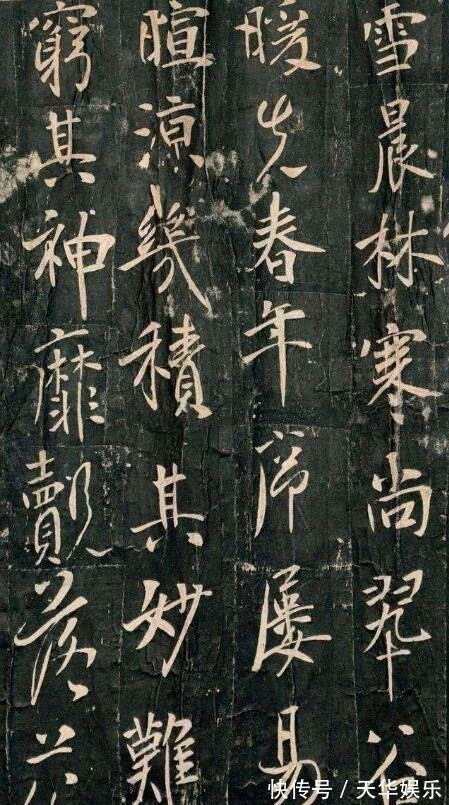 雪晨林寒尚翠
暖先春年序屡易
暄涼幾積其妙難
窮其神靡覿落
快传号 / 天华娱乐